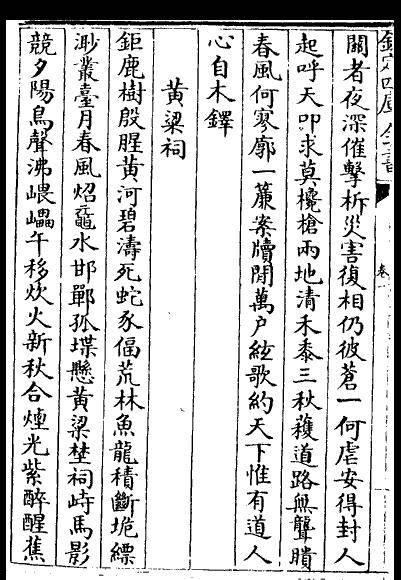 欽定四庫全書
卷一
闗者夜深催擊柝災害復相仍彼蒼一何虐安得封人
起呼天叩求莫欃槍兩地清禾黍三秋蕿道路無聾聵
春風何寥廓一簾案牘閒萬户絃歌約天下惟有道人
心自木鐸
黄粱祠
鉅鹿樹殷腥黄河碧濤死蛇豕偪荒林魚龍積斷垝縹
渺叢臺月春風炤 水邯鄲孤堞懸黄粱埜祠峙馬影
競夕陽鳥聲沸㟪㠥午移炊火新秋合煙光紫醉醒蕉